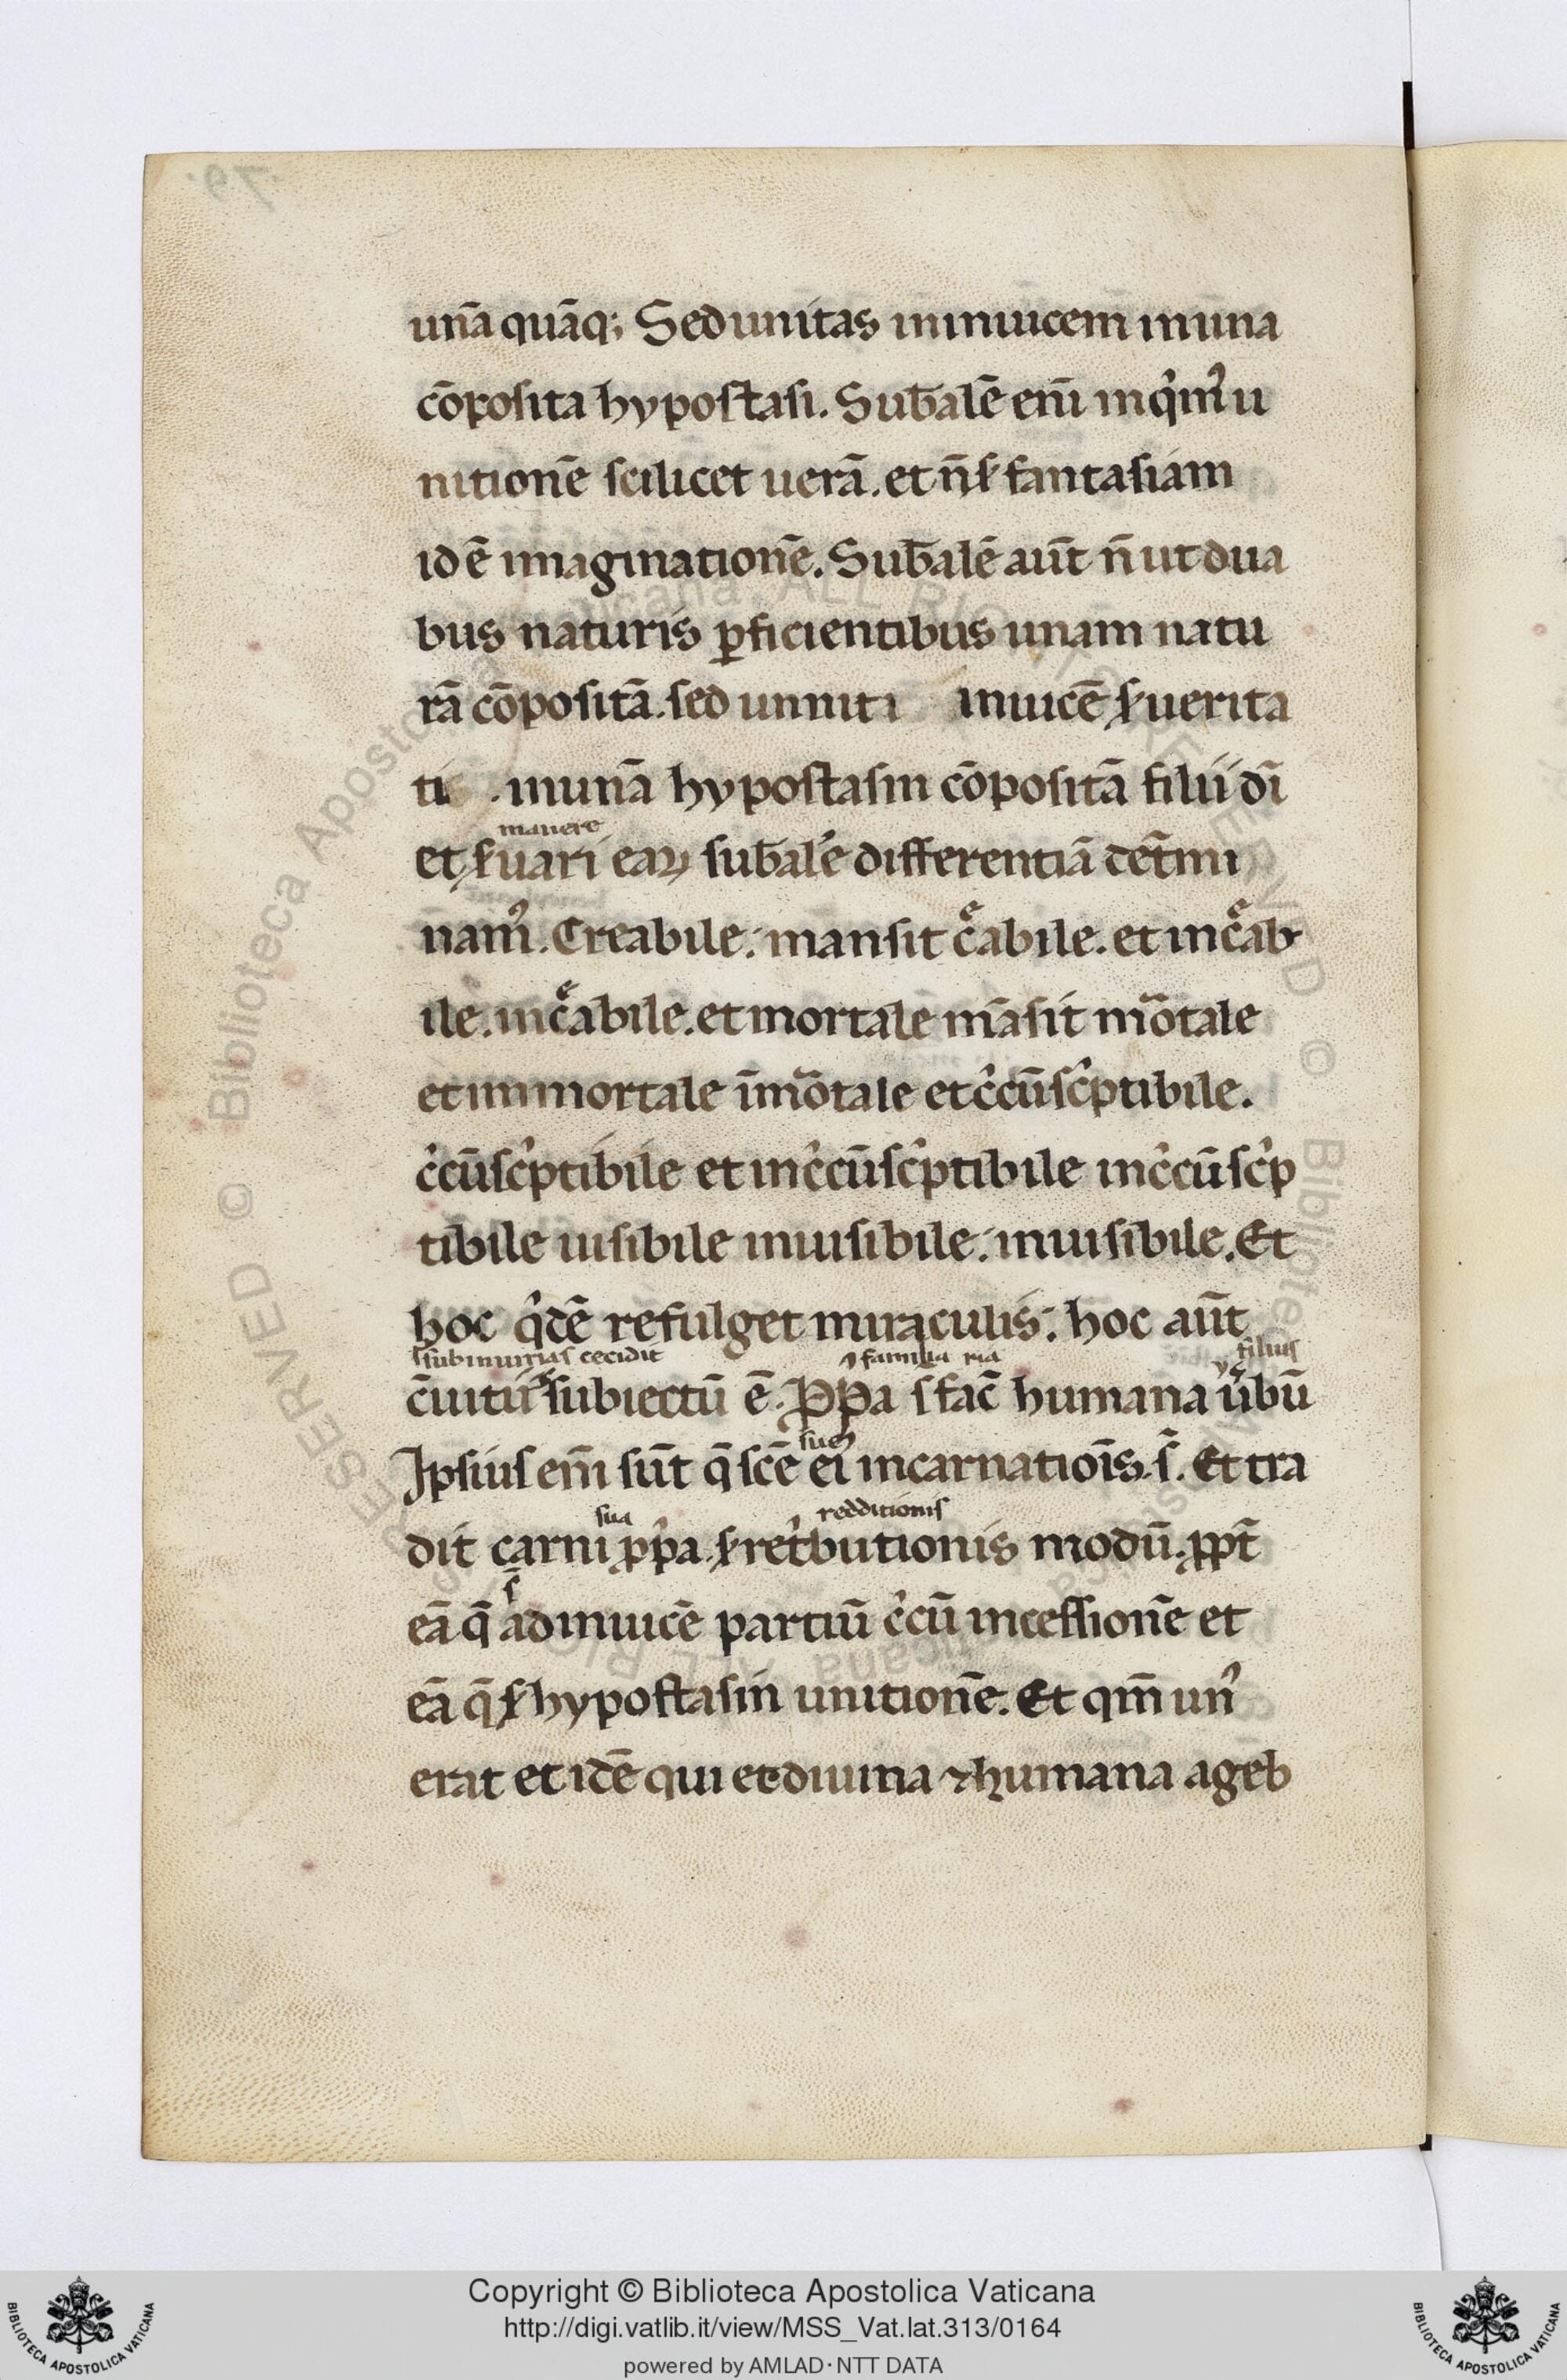 unā quāq; Sed unitas in inuicem in una
cōposita hypostasi. Sub̄alē enī inq̇im᾽ u
nitionē scilicet uerā. et n̄ s̵ fantasiam
id ē imaginationē. Sub̄alē aūt n̄ ut dua
bus naturis ꝑficientibus unam natu
rā cōpositā. sed unniti inuicē s̵ uerita
ti . in unā hypostasin cōpositā filii dī
manere
et s̵uari eaꝝ sub̄alē differentiā det̄mi
nam᾽. Creabile. mansit cͤabile. et incͤab
ile. incͤabile. et mortale māsit mo̊tale
et immortale īmo̊tale et cͥcūscͥptibile.
cͥcūscͥptibile et incͥcūscͥptibile incͥcūscͥp
tibile uisibile inuisibile. inuisibile. Et
hoc qͥdē refulget miraculis. hoc aūt
sub iniurias cecidit ⁊ familia ria filius
c̄uitiis subiectū ē. P̱pͥa s̄ fac̄ humana ủbū
Ipsius em̄ sūt q̄ sc̄e ei incarnatiōis. s̄. Et tra
sue
dit carni ꝓpͥa. s̵ retͥbutionis modū. ꝓpt̄
sua redditionis
eā q̄ ad inuicē partiū cͥcū incessionē et
s̄
eā q̄ s̵ hypostasin unitionē. Et qm̄ un᾽
erat et idē qui et diuina ⁊ humana ageb
Copyright © Biblioteca Apostolica Vaticana
http://digi.vatlib.it/view/MSS_Vat.lat.313/0164
powered by AMLAD · NTT DATA
BIBLIOTECA APOSTOLICA VATICANA
BIBLIOTECA APOSTOLICA VATICANA